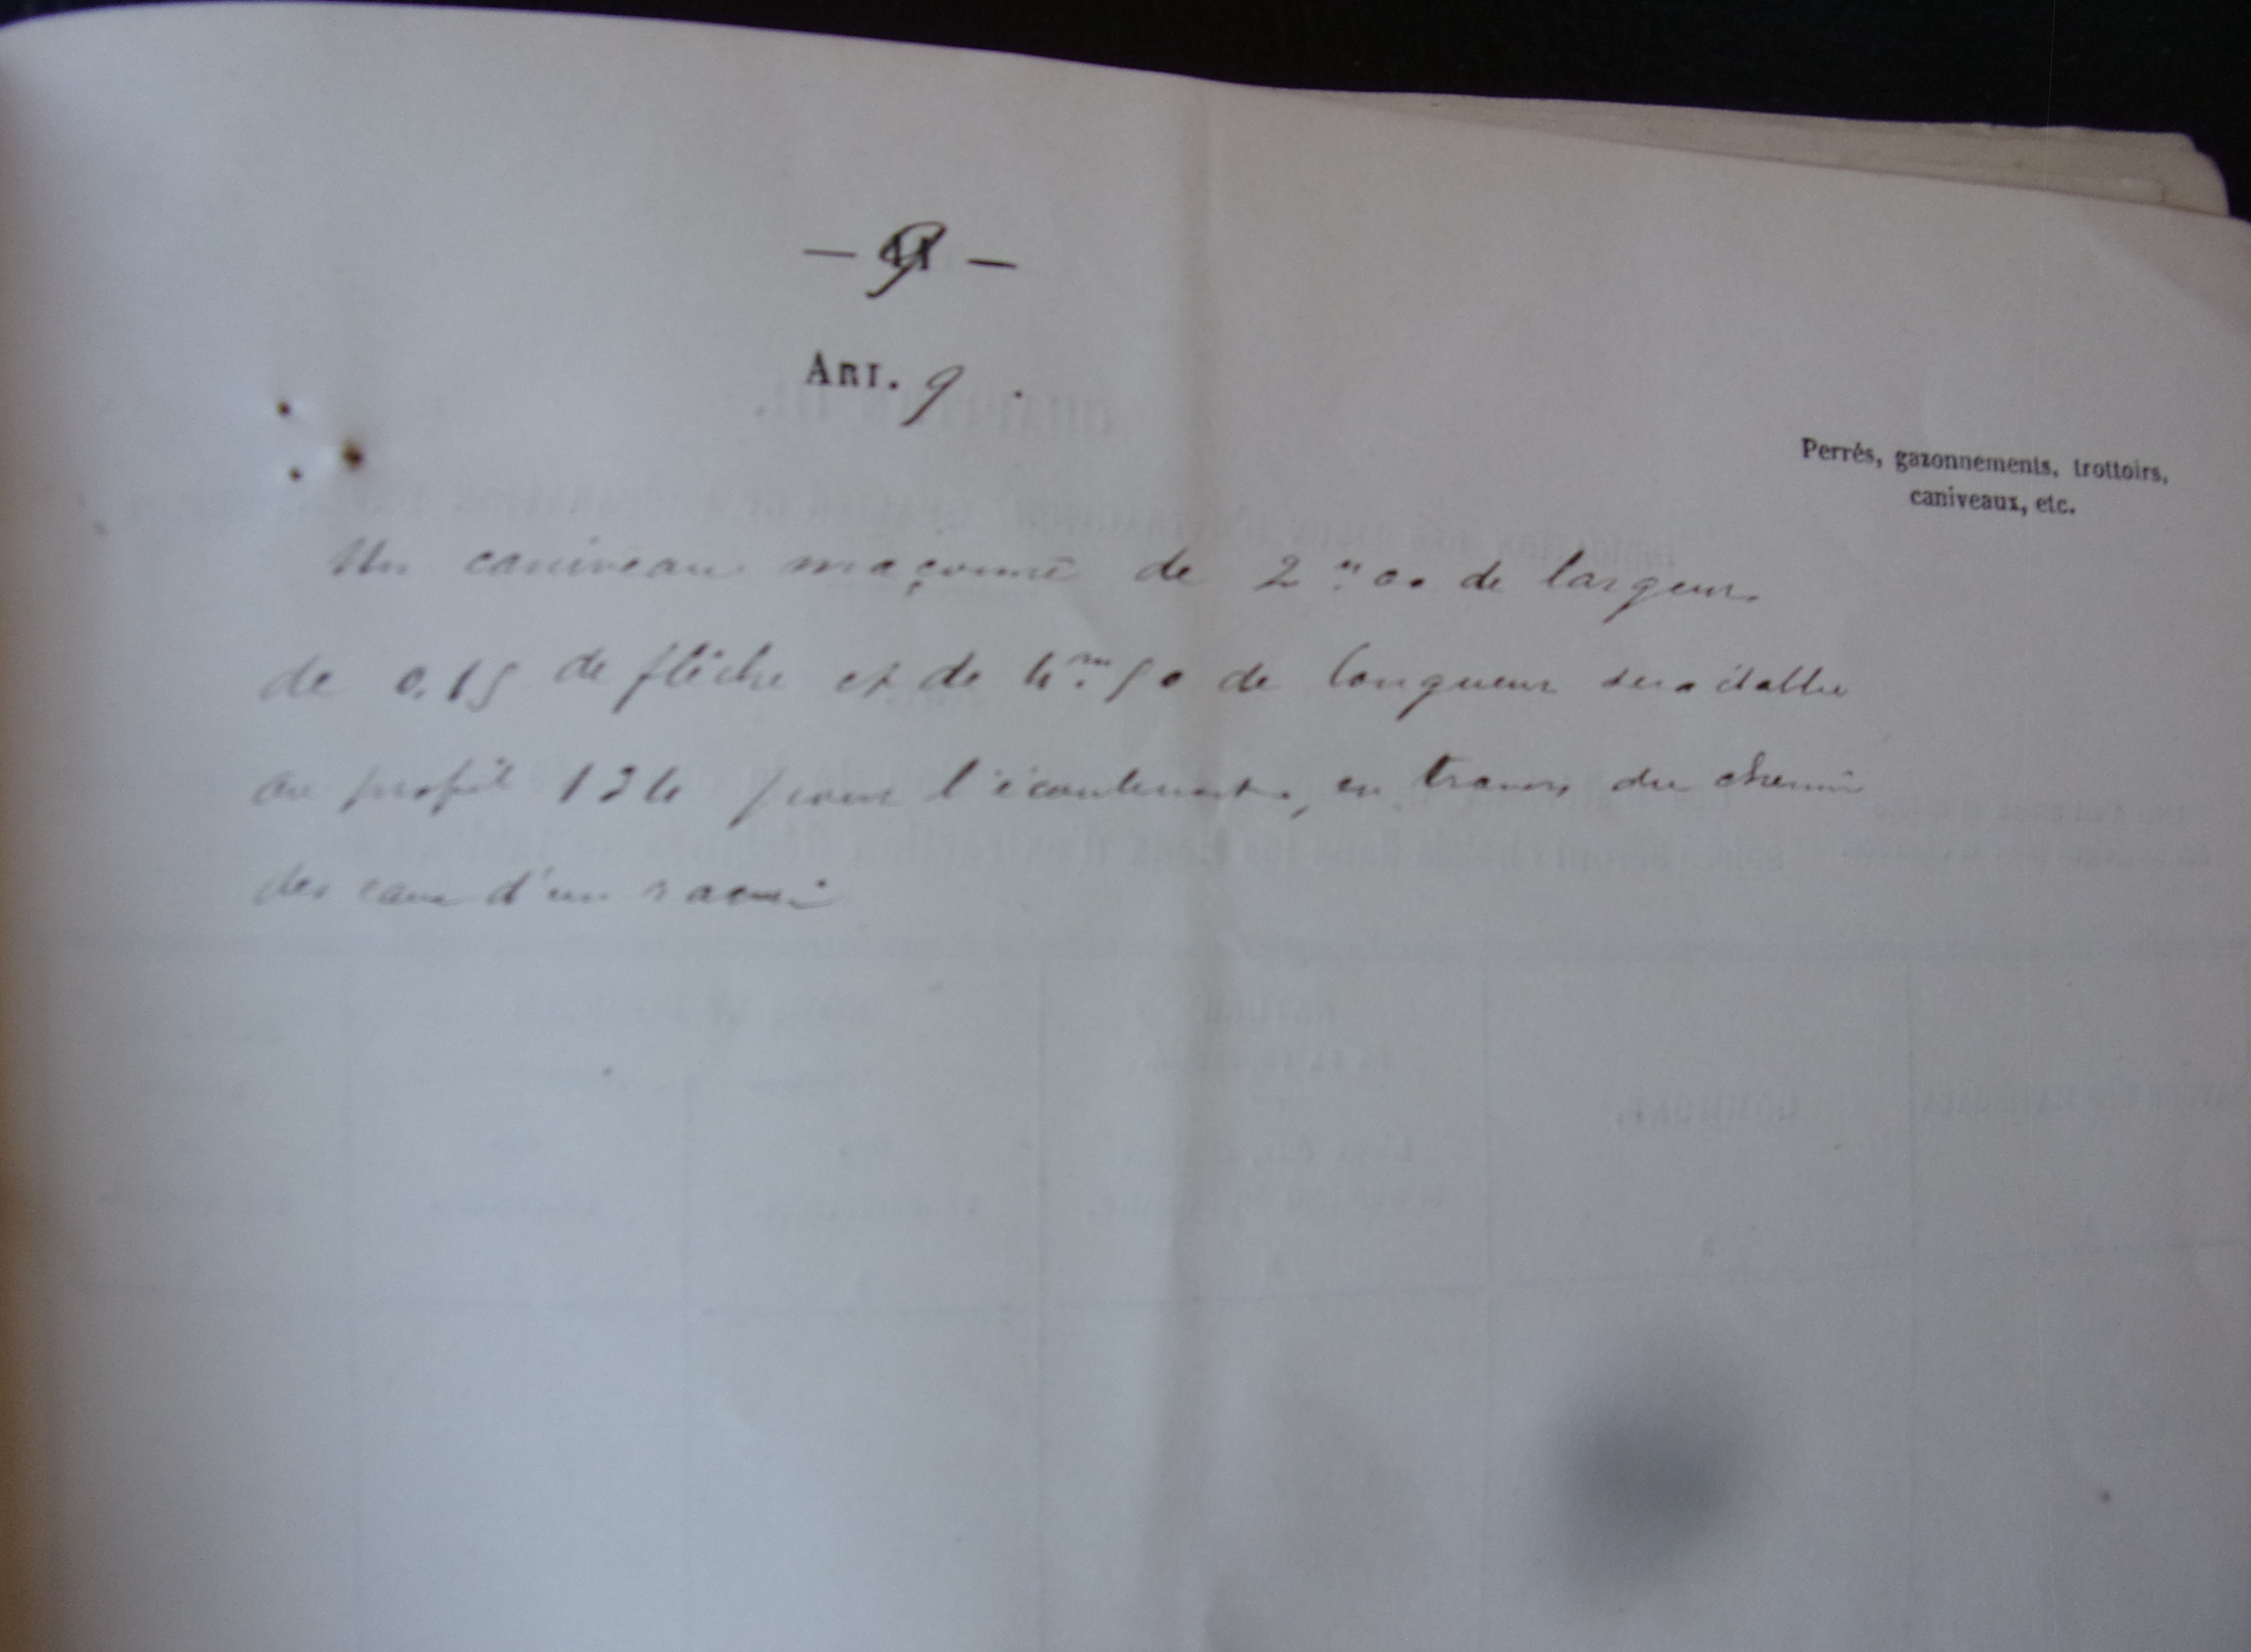 — 9 —
ART. 9.
Perrés, gazonnements, trottoirs,
caniveaux, etc.
Un caniveau maçonné de 2.m00 de largeur
de 0.15 de flèche et de 4.m50 de longueur sera établi
au profil 124 pour l'écoulement, en travers du chemin
des eaux d'un ravin